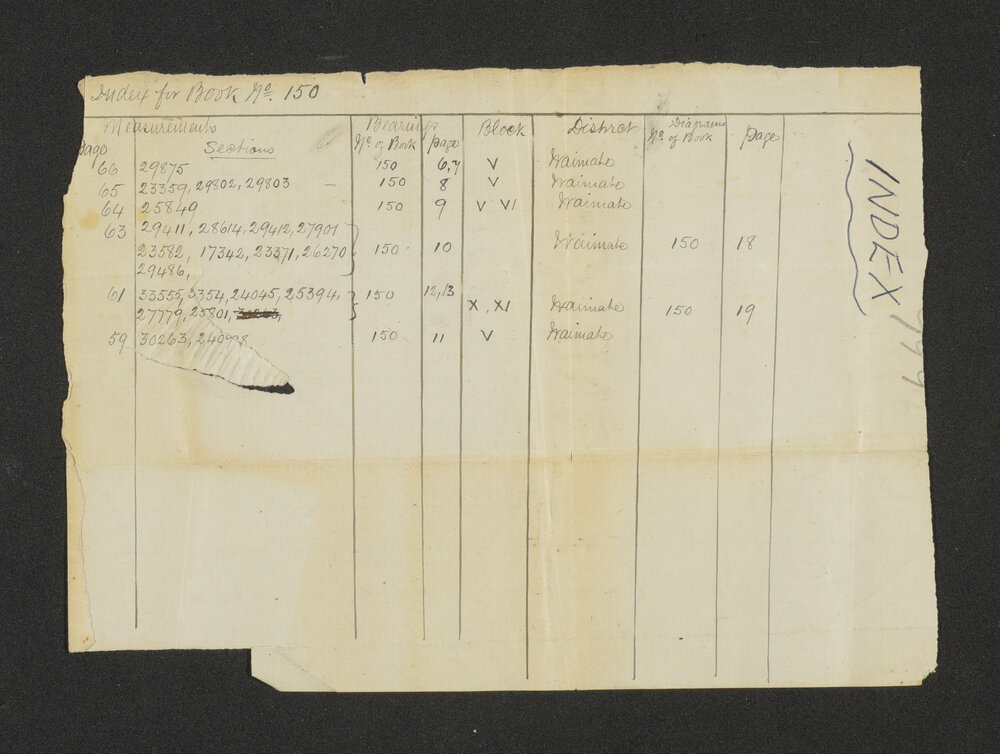 Index for Book No. 150
Measurements Bearings Block District Diagrams page
page Sections No. of Book page No. of Book
66 29875 150 6,7 V Waimate
65 23359, 29802, 29803 — 150 8 V Waimate
64 25849 150 9 V VI Waimate
63 29411, 28614, 29412, 27901
23582, 17342, 23371, 26270 150 10 Waimate 150 18
29486,
61 33555, 3354, 24045, 25394, 150 12,13
27779, 25801, X, XI Waimate 150 19
59 30263, 150 11 V Waimate
INDEX